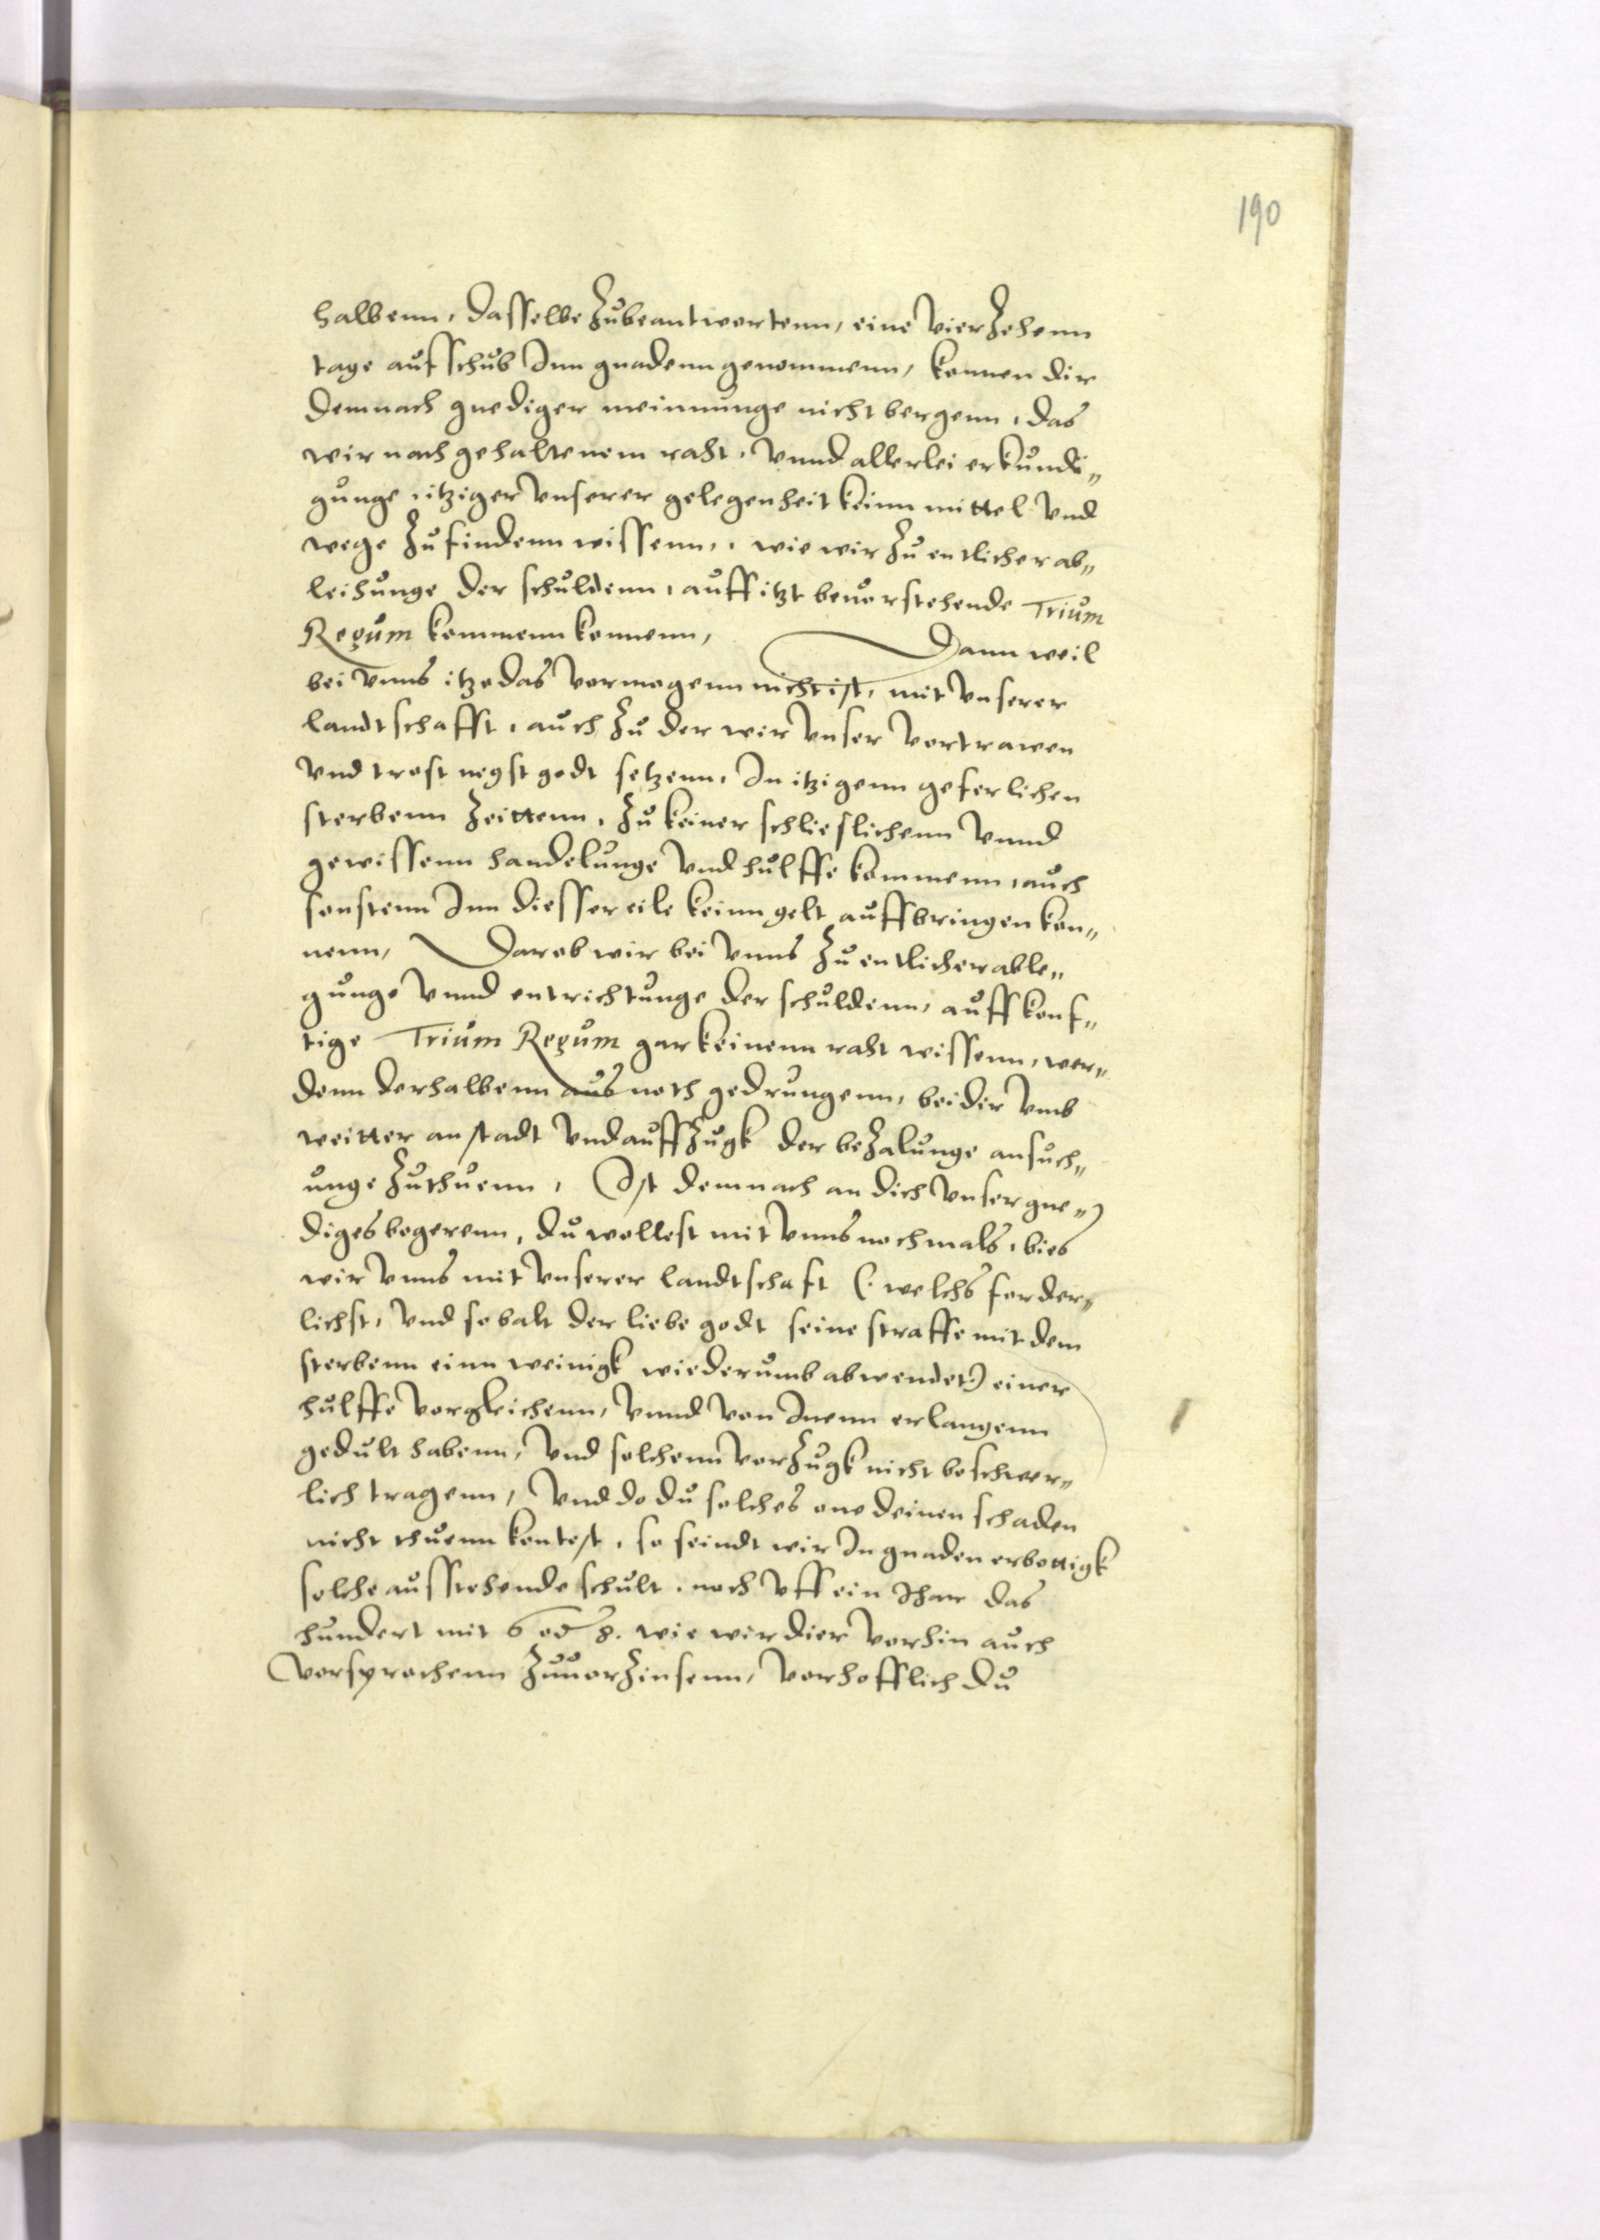 190
halbenn, dasselbe zubeantwortenn, eine vierzehenn
tage aufschub Inn gnadenn genommenn, konnen dir
demnach gnediger meinnunge nicht bergenn, das
wir nach gehaltenem raht, vnnd allerlei erkundi„
gunge, itziger vnserer gelegenheit keinn mittel vnd
wege zu findenn wissenn, wie wir zu entlicher ab„
leihunge der schuldenn, auff itzt beuorstehende Trium
Regum kommenn konnenn, Dann weil
bei vnns itzo das vormogenn nicht ist, mit vnserer
landtschafft, auch zu der wir vnser vortrawen
vnd trost negst godt setzenn, In itzigenn geferlichen
sterbenn zeittenn, zu keiner schlieslichenn vnnd
gewissenn handelunge vnd hulffe kommenn, auch
sonstenn Inn diesser eile keinn gelt auffbringen kon„
nenn, Darob wir bei vnns zu entlicher able„
gunge vnnd entrichtunge der schuldenn, auff konf„
tige Trium Regum gar keinenn raht wissenn, wer„
denn derhalbenn aus noth gedrungenn, bei dir vmb
weitter anstadt vnd auffzugk der bezalunge ansuch„
unge zuthuenn, Ist demnach an dich vnser gne„
diges begerenn, du wollest mit vnns nochmals, bies
wir vnns mit vnserer landtschaft (: welchs forder„
lichst, vnd so balt der liebe godt seine straffe mit dem
sterbenn einn weinigk wiederumb abwendet:) einer
hulffe vorgleichenn, vnnd von Inenn erlangenn
gedult habenn, vnd solchenn vorzugk nicht beschwer„
lich tragenn, vnd do du solches one deinen schaden
nicht thuenn kontest, so seindt wir In gnaden erbottigk
solche ausstehende schult, noch vff ein Ihar das
hundert mit 6 od 8. wie wir dier vorhin auch
vorsprochenn zuuorzinsenn, vorhofflich du